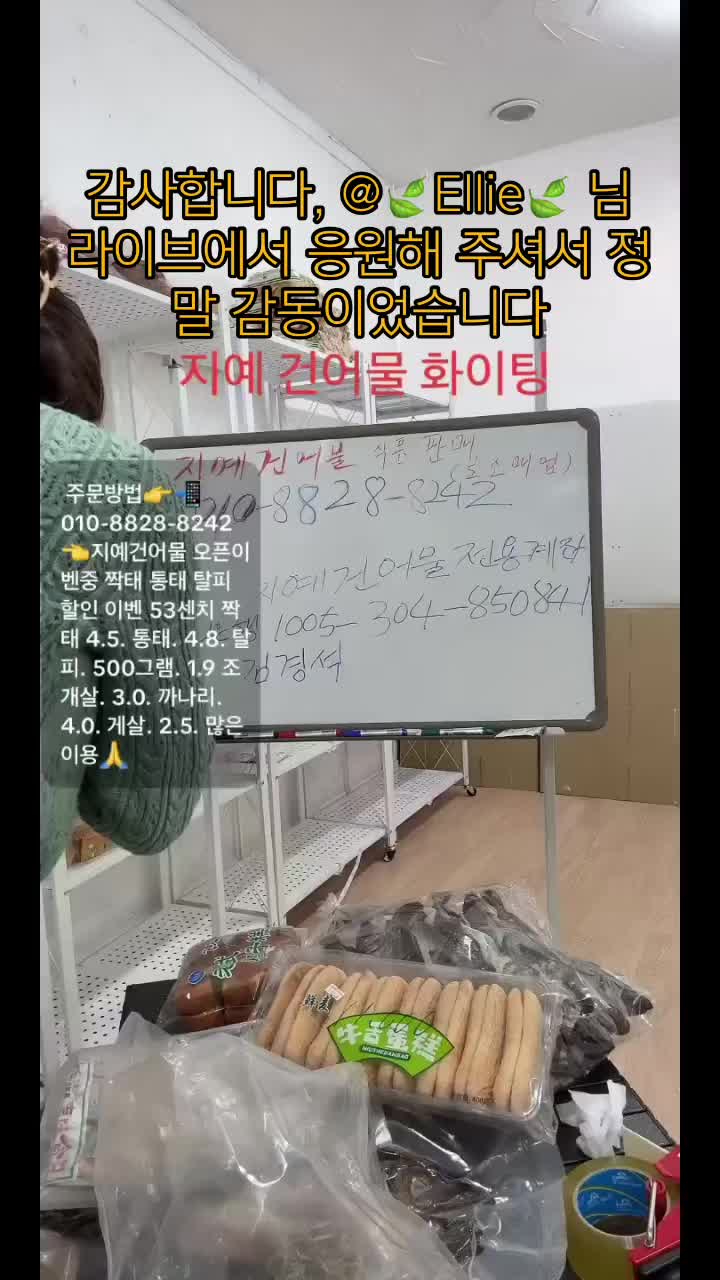 감사합니다, @🌿Ellie🌿 님
라이브에서 응원해 주셔서 정
말 감동이었습니다
지예 건어물 화이팅
지예건어물 식품 판매
(도소매업)
010-8828-8242
지예건어물 전용계좌
1005-304-850841
김경석
주문방법👉📲
010-8828-8242
👈지예건어물 오픈이
벤중 짝태 통태 탈피
할인 이벤 53센치 짝
태 4.5. 통태. 4.8. 탈
피. 500그램. 1.9 조
개살. 3.0. 까나리.
4.0. 게살. 2.5. 많은
이용🙏
牛舌蛋糕